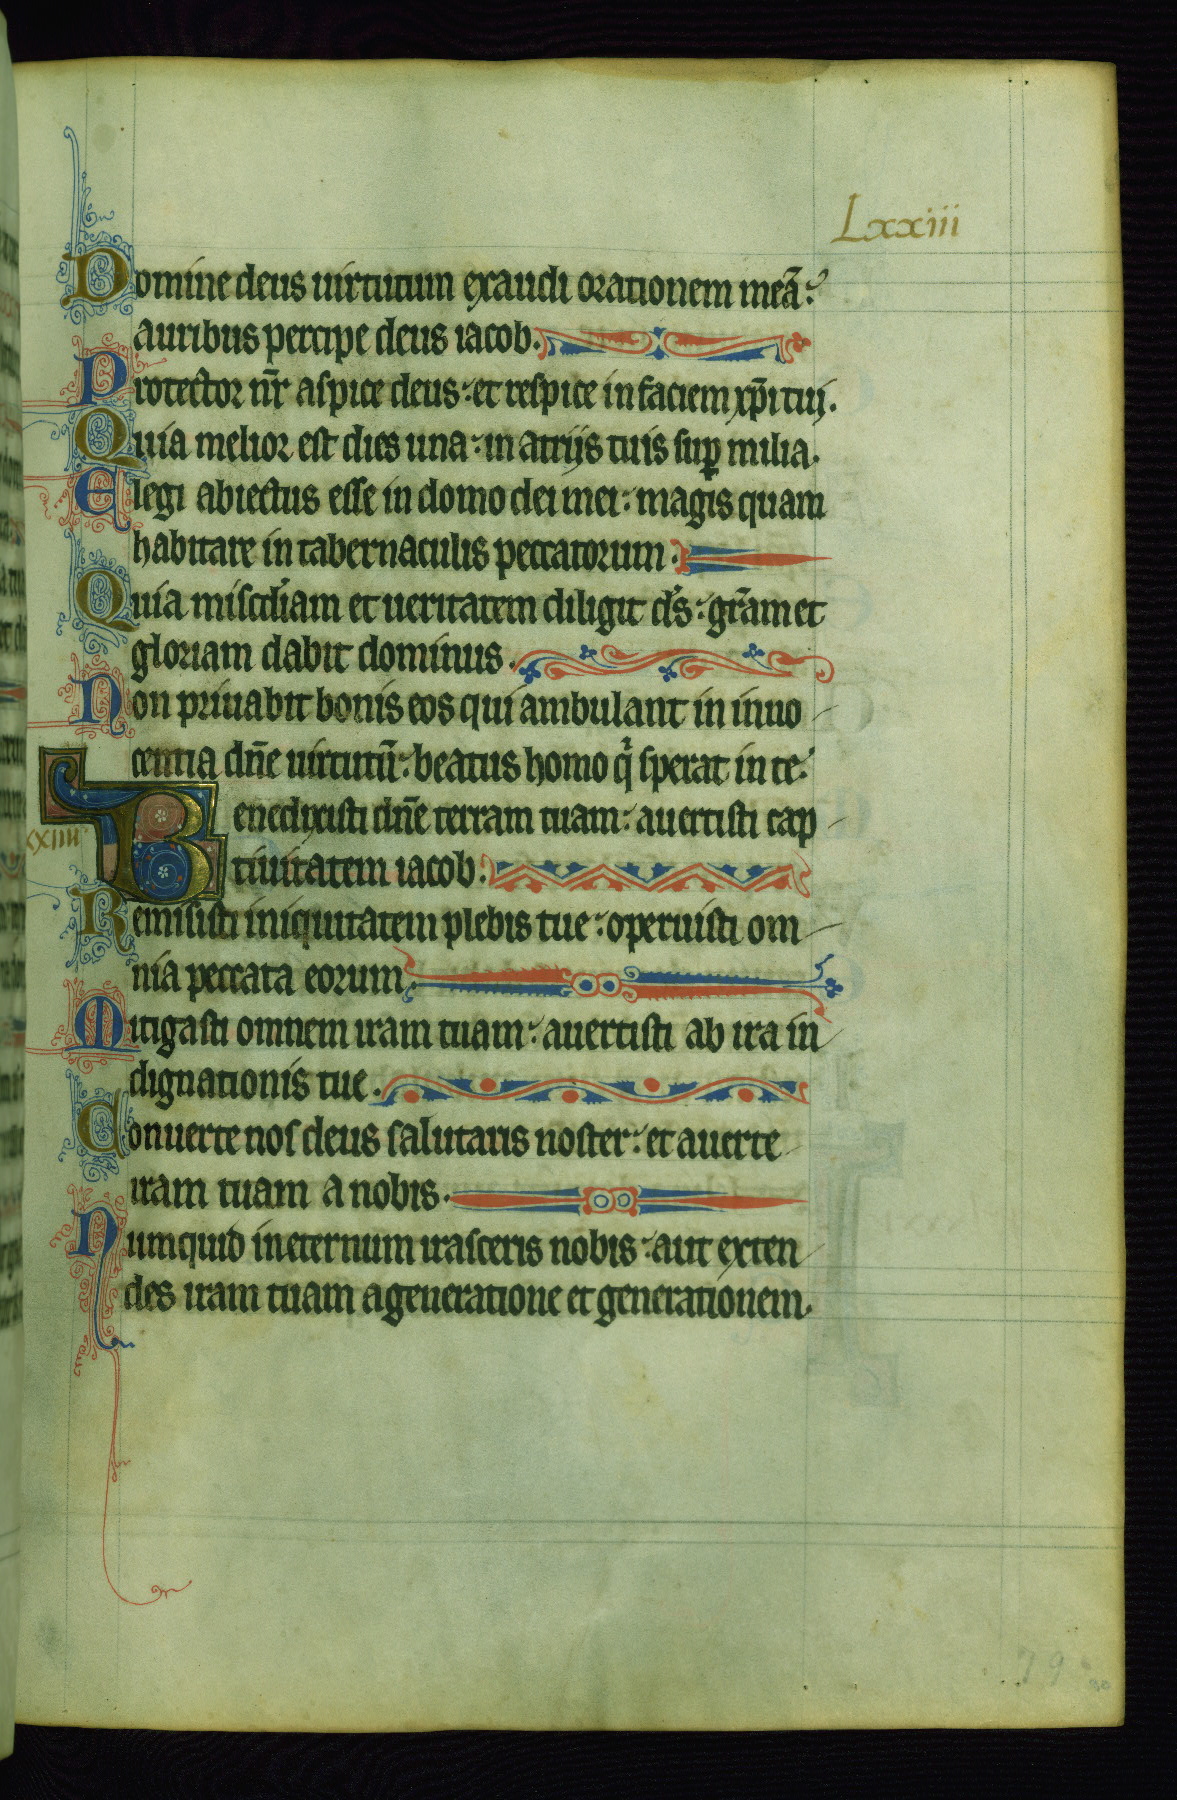 Lxxiii
Domine deus uirtutum exaudi orationem meā:
auribus percipe deus iacob.
Protector nr̄ aspice deus: et respice in faciem xp̄i tuj.
Quia melior est dies una: in atrijs tuis suꝑ milia.
Elegi abiectus esse in domo dei mei: magis quam
habitare in tabernaculis peccatorum.
Quia misc̄diam et ueritatem diligit ds̄: gr̄am et
gloriam dabit dominus.
Non priuabit bonis eos qui ambulant in inno
centia dn̄e uirtutū: beatus homo qͥ sperat in te.
xxiiii
Benedixisti dn̄e terram tuam: auertisti cap
tiuitatem iacob.
Remisisti iniquitatem plebis tue: operuisti om
nia peccata eorum.
Mitigasti omnem iram tuam: auertisti ab ira in
dignationis tue.
Conuerte nos deus salutaris noster: et auerte
iram tuam a nobis.
Numquid in eternum irasceris nobis: aut exten
des iram tuam a generatione et generationem.
79